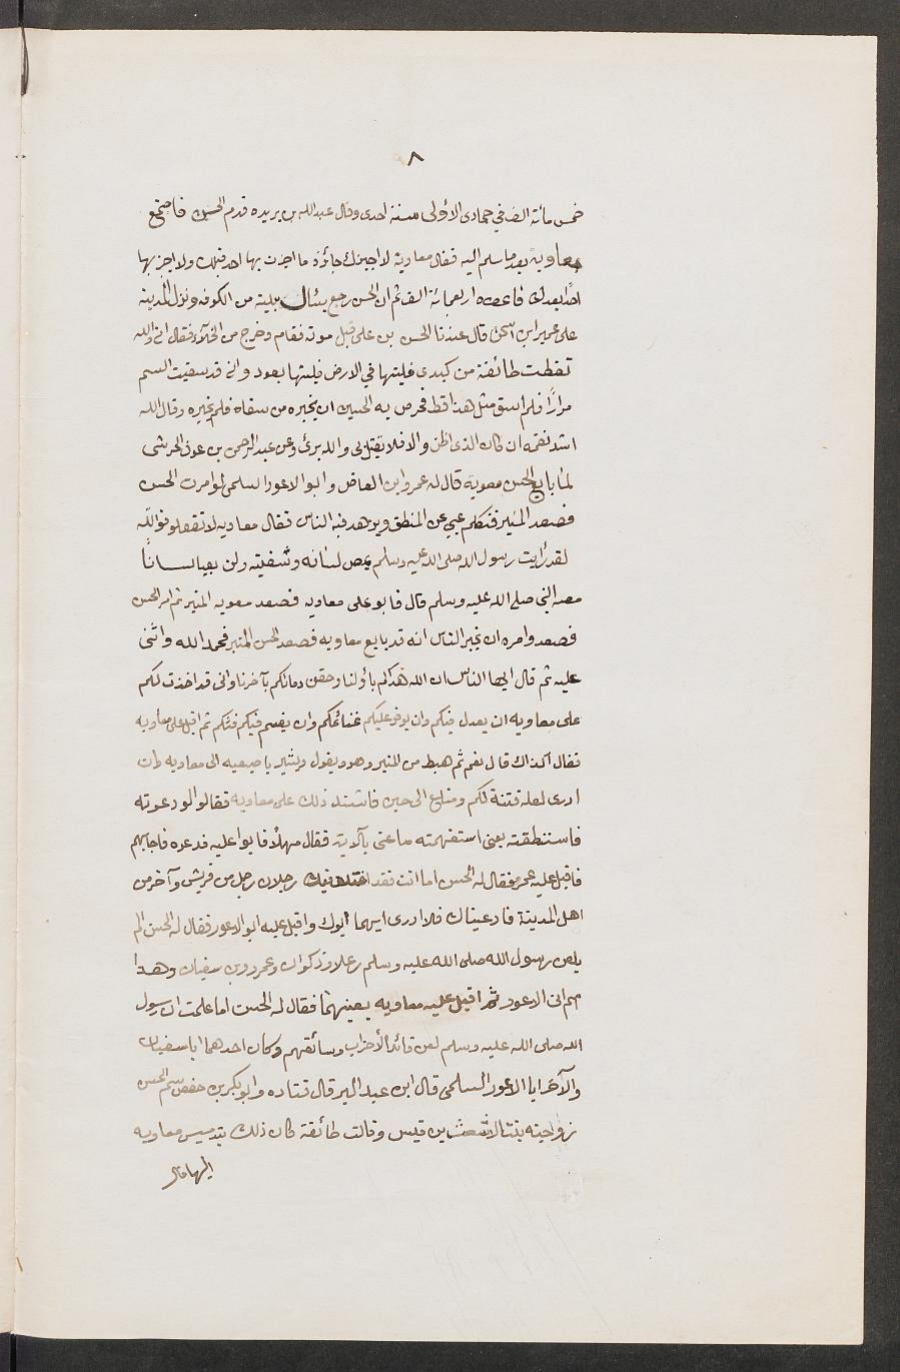 ٨
خمس مائة الف في جمادى الاولى سنة احدى وقال عبد الله بن بريده قدم الحسن فاجتمع
بمعاوية بعد ما سلم اليه فقال معاوية لاجيزنك جائزة ما اجزت بها احد قبلك ولا اجيز بها
احدا بعدك فاعطاه اربعمائة الف ثم ان الحسن رجع بئال بيته من الكوفه ونزل المدينة
على عمير ابن اسحق قال عندنا الحسن بن على قبل موته فقام وخرج من الخلاء فقال انى والله
لفظت طائفة من كبدى قلبتها في الارض قلبتها بعود وانى قد سقيت السم
مرارًا فلم اسق مثل هذا قط فحرص به الحسين ان يخبره من سقاه فلم يخبره وقال الله
اشد نقمه ان كان الذى اظن والا فلا يقتل بى والله برئ وعن عبد الرحمن بن عوف الحرشى
لما بايع الحسن معويه قال له عمرو ابن العاص وابو الاعور السلمى لو امرت الحسن
فصعد المنبر فتكلم عيي عن المنطق ويزهد فيه الناس فقال معاويه لا تفعلو فوالله
لقد رأيت رسول الله صلى الله عليه وسلم يمص لسانه وشفيته ولن يعيا لسانًا
مصه النبي صلى الله عليه وسلم قال فابو على معاويه فصعد معويه المنبر ثم امر الحسن
فصعد وامره ان يخبر الناس انه قد بايع معاويه فصعد الحسن المنبر فحمد الله واثنى
عليه ثم قال ايها الناس ان الله هداكم باولنا وحقن دمائكم بآخرنا وانى قد اخذت لكم
على معاويه ان يعدل فيكم وان يوفر عليكم غنائمكم وان يقسم فيكم فئكم ثم اقبل على معاويه
فقال اكذاك قال نعم ثم هبط من المنبر وهو يقول ويشير باصبعيه الى معاويه وان
ادرى لعله فتنة لكم ومتاع الى حين فاشتد ذلك على معاويه فقالوا لو دعوته
فاستنطقته يعنى استفهمته ما عنى بالآية فقال مهلًا فابوا عليه فدعوه فاجابهم
فاقبل عليه عمرو فقال له الحسن اما انت فقد اختلف فيك رجلان رجل من قريش وآخر من
اهل المدينة فادعيناك فلا ادرى ايهما ابوك واقبل عليه ابو الاعور فقال له الحسن الم
يلعن رسول الله صلى الله عليه وسلم رعلا وذكوان وعمرو بن سفيان وهذا
اسم ابى الاعور ثم اقبل عليه معاويه يعينهما فقال له الحسن اما علمت ان رسول
الله صلى الله عليه وسلم لعن قائد الأحزاب وسائقهم وكان احدهما ابا سفيان
والآخر ابا الاعور السلمى قال ابن عبد البر قال قتاده وابو بكر بن حفص سم الحسن
زوجته بنت الاشعث بن قيس وقالت طائفة كان ذلك بتدسيس معاويه
اليها